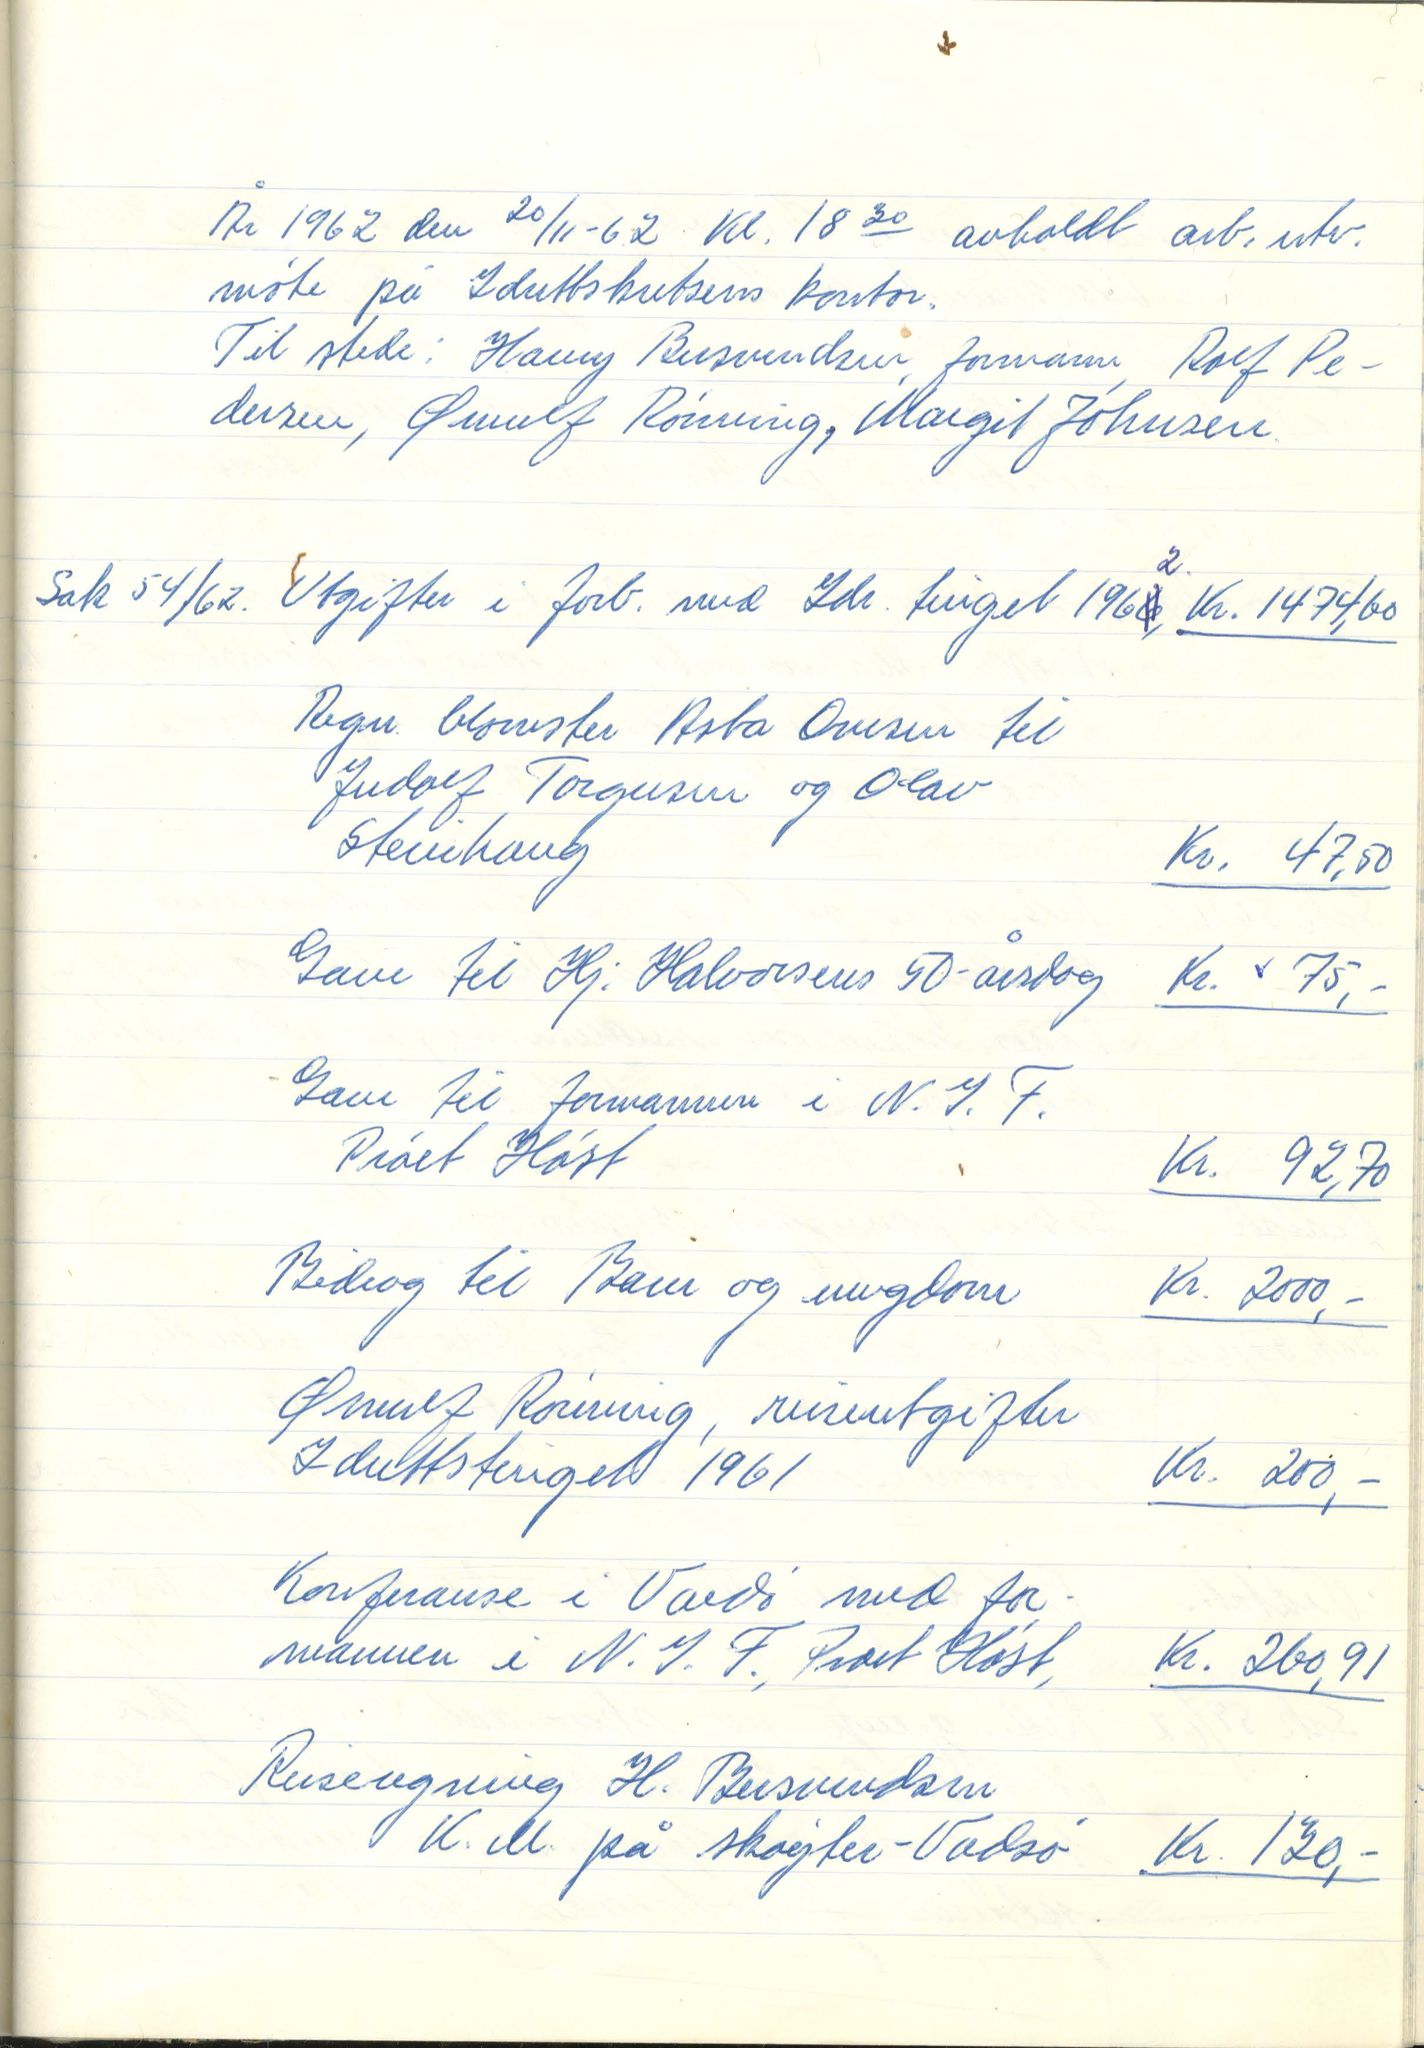 År 1962 den 20/11-62 Kl. 18 30 avholdt arb. utv.
möte på Idrettskretsens kontor.
Til stede: Harry Bersvendsen, formann, Rolf Pe-
dersen, Ørnulf Rönning, Margit Johnsen.
Sak 54/62. Utgifter i forb. med Idr. tinget 1962, Kr. 1474,60
Regn. blomster Asta Ovesen til
Torgersen og Olav
Steinhaug Kr. 47,50
Gave til Hj. Halvorsens 50-årsdag Kr. 75,-
Gave til formannen i N. I. F.
Proet Höst Kr. 92,70
Bidrag til Barn og ungdom Kr. 2000,-
Ørnulf Rönning, reiseutgifter
Idrettstinget 1961 Kr. 200,-
Konferanse i Vardö med for-
mannen i N. I. F., Proet Höst, Kr. 260,91
Reiseregning H. Bersvendsen
K. M. på sköyter-Vadsö Kr. 130,-